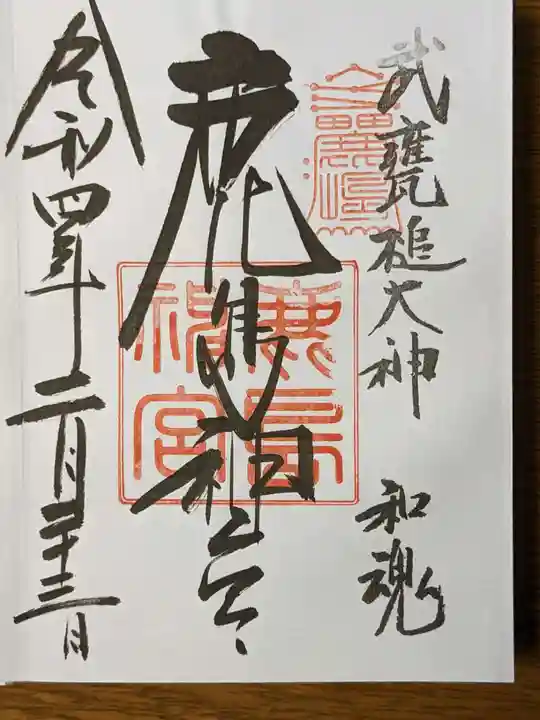 武甕槌大神 和魂
鹿島神宮
令和四年二月二十三日
鹿島
神宮